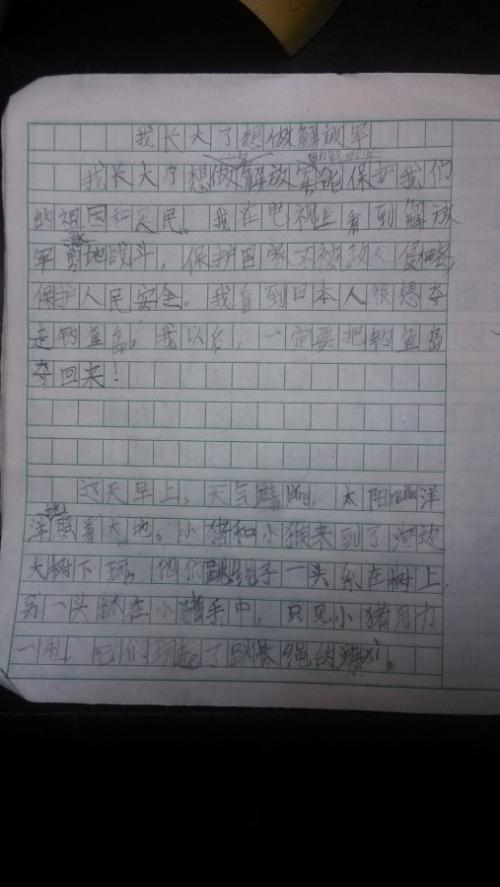 我长大了想做解放军
我长大了想做解放军能保护我们
的祖国和人民。我在电视上看到解放
军勇敢地战斗，保护国家不被敌人侵略，
保护人民安全。我看到日本人很想夺
走钓鱼岛，我以后，一定要把钓鱼岛
夺回来！
这天早上，天气晴lǎng，太阳nuǎn洋
洋地照着大地。小猪和小猴来到了河边
大树下玩，他们跳绳子一头系在树上，
另一头抓在小猪手中，只见小猪用力
一甩，它们玩起了跳长绳的游xì。